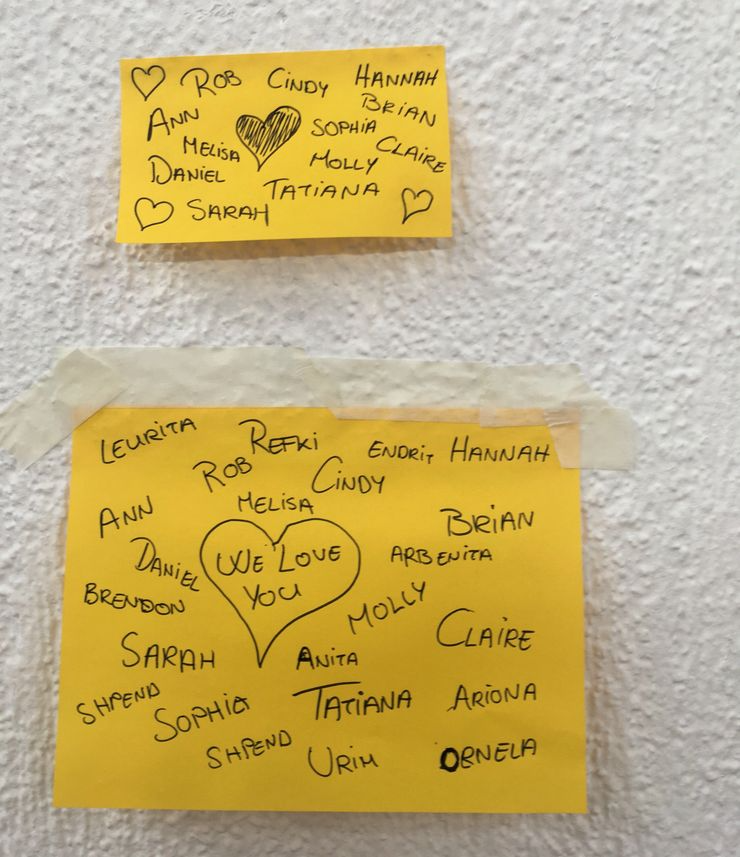 ROB CINDY HANNAH
ANN BRIAN
MELISA SOPHIA CLAIRE
DANIEL MOLLY
TATIANA
SARAH
LEURITA REFKI ENDRIT HANNAH
ROB CINDY
ANN MELISA BRIAN
DANIEL WE LOVE ARBENITA
BRENDON YOU MOLLY
SARAH ANITA CLAIRE
SHPEND SOPHIA TATIANA ARIONA
SHPEND URIM ORNELA